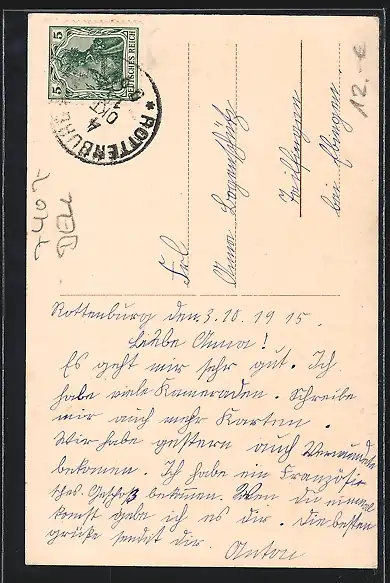 5 5
DEUTSCHES REICH
* ROTTENBURG
4
OKT
12.-€
7407
DEU
Frl
Anna
bei Ebingen
Rottenburg den 3.10.1915.
Liebe Anna!
Es geht mir sehr gut. Ich
habe viele Kameraden. Schreibe
mir auch mehr Karten.
Wir habe gestern auch Verwundete
bekomen. Ich habe ein Französi
sches Geschoß bekomen. Wen du einmal
komst gebe ich es dir. Die besten
grüße sendet dir
Anton